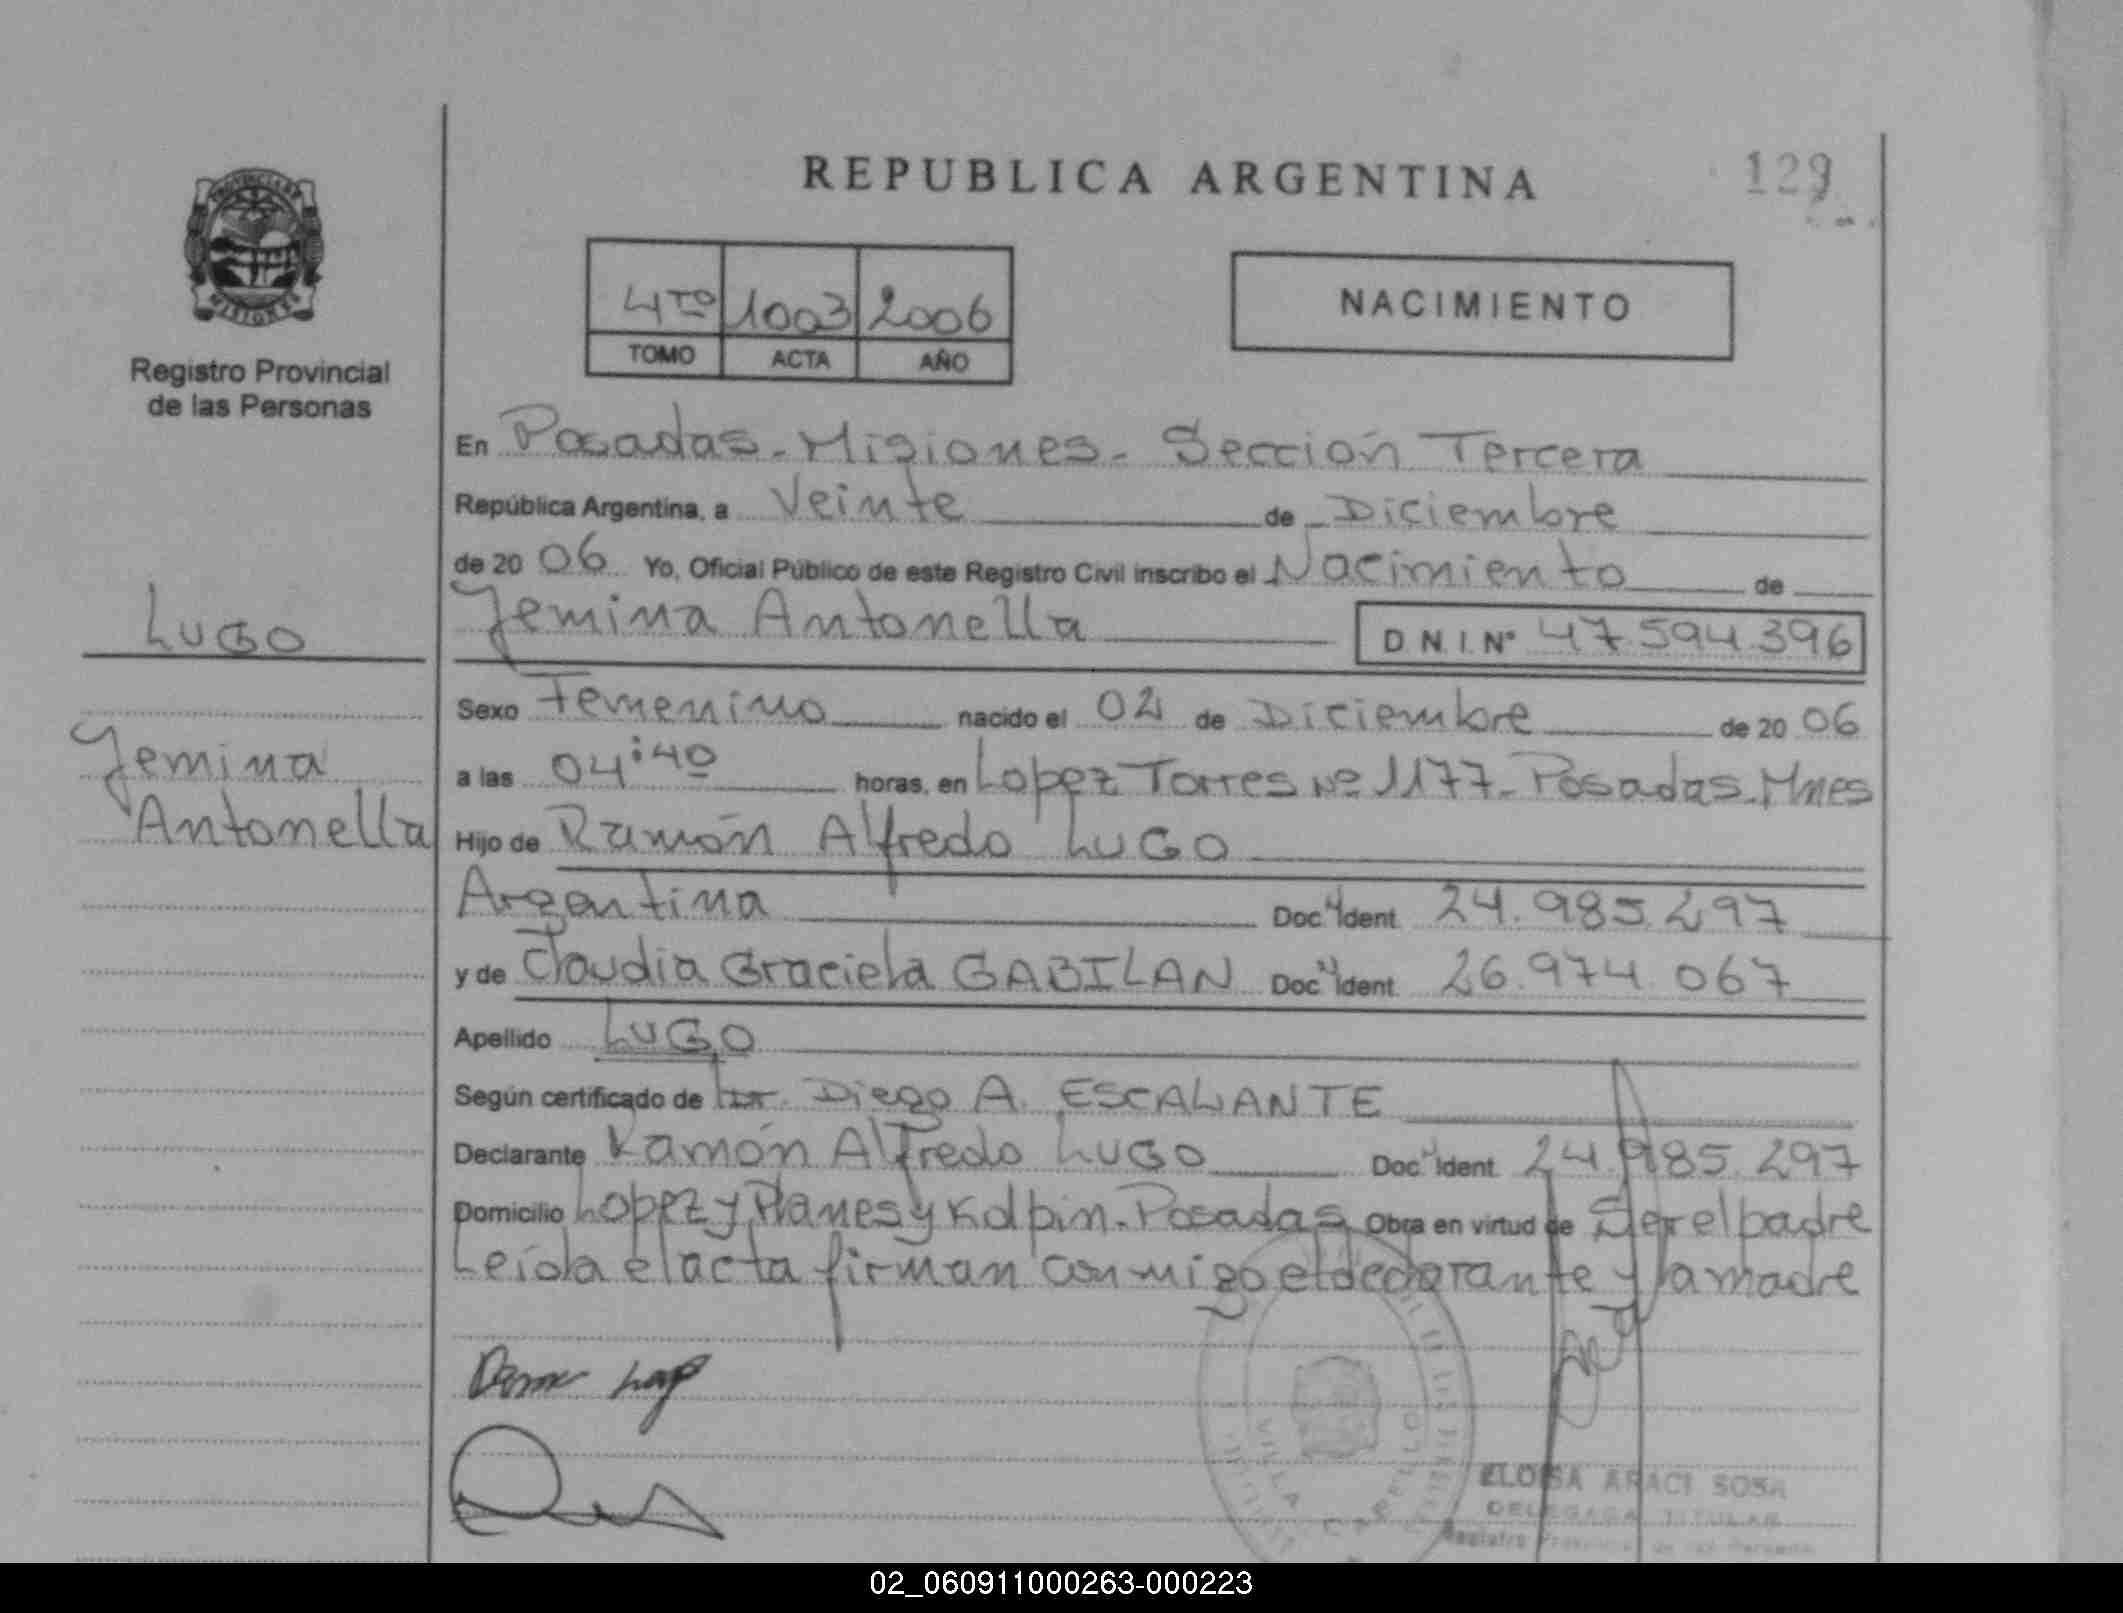 REPUBLICA ARGENTINA
129
PROVINCIA DE
MISIONES
Registro Provincial
de las Personas
4TO 1003 2006
TOMO ACTA AÑO
NACIMIENTO
En Posadas - Misiones - Sección Tercera
República Argentina, a Veinte de Diciembre
de 20 06 Yo, Oficial Público de este Registro Civil inscribo el Nacimiento de
Yemina Antonella D.N.I. N° 47.594.396
LUGO
Yemina
Antonella
Sexo Femenino nacido el 02 de Diciembre de 20 06
a las 04:40 horas, en Lopez Torres Nº 1177 - Posadas - Mnes
Hijo de Ramón Alfredo LUGO
Argentina Doc. Ident. 24.985.297
y de Claudia Graciela GABILAN Doc. Ident. 26.974.067
Apellido LUGO
Según certificado de Dr. Diego A. ESCALANTE
Declarante Ramón Alfredo LUGO Doc. Ident. 24.985.297
Domicilio Lopez y Planes y Kolpin - Posadas Obra en virtud de Ser el padre
Leída el acta firman conmigo el declarante y la madre
VILLA CABELLO
ELOISA ARACI SOSA
DELEGADA TITULAR
Registro Provincial de las Personas
02_060911000263-000223